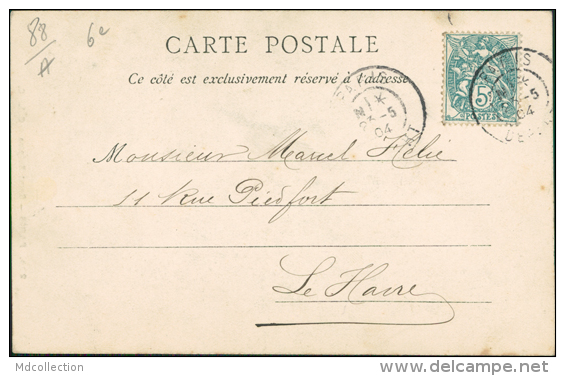 88
A
6e
CARTE POSTALE
Ce côté est exclusivement réservé à l'adresse.
5c
POSTES
5
04
5
04
Monsieur Marcel Hélie
11 Rue Piedfort
Le Havre
Mdcollection
delcampe.net